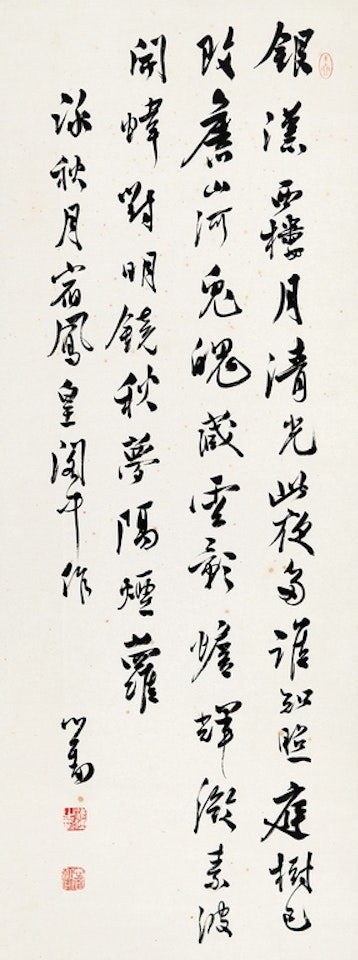 銀漢西樓月清光此夜多誰知照庭樹已
改舊山河兔魄藏雲影蟾輝澂素波
開幃對明鏡秋夢隔煙蘿
詠秋月宿鳳皇閣中作
心畬